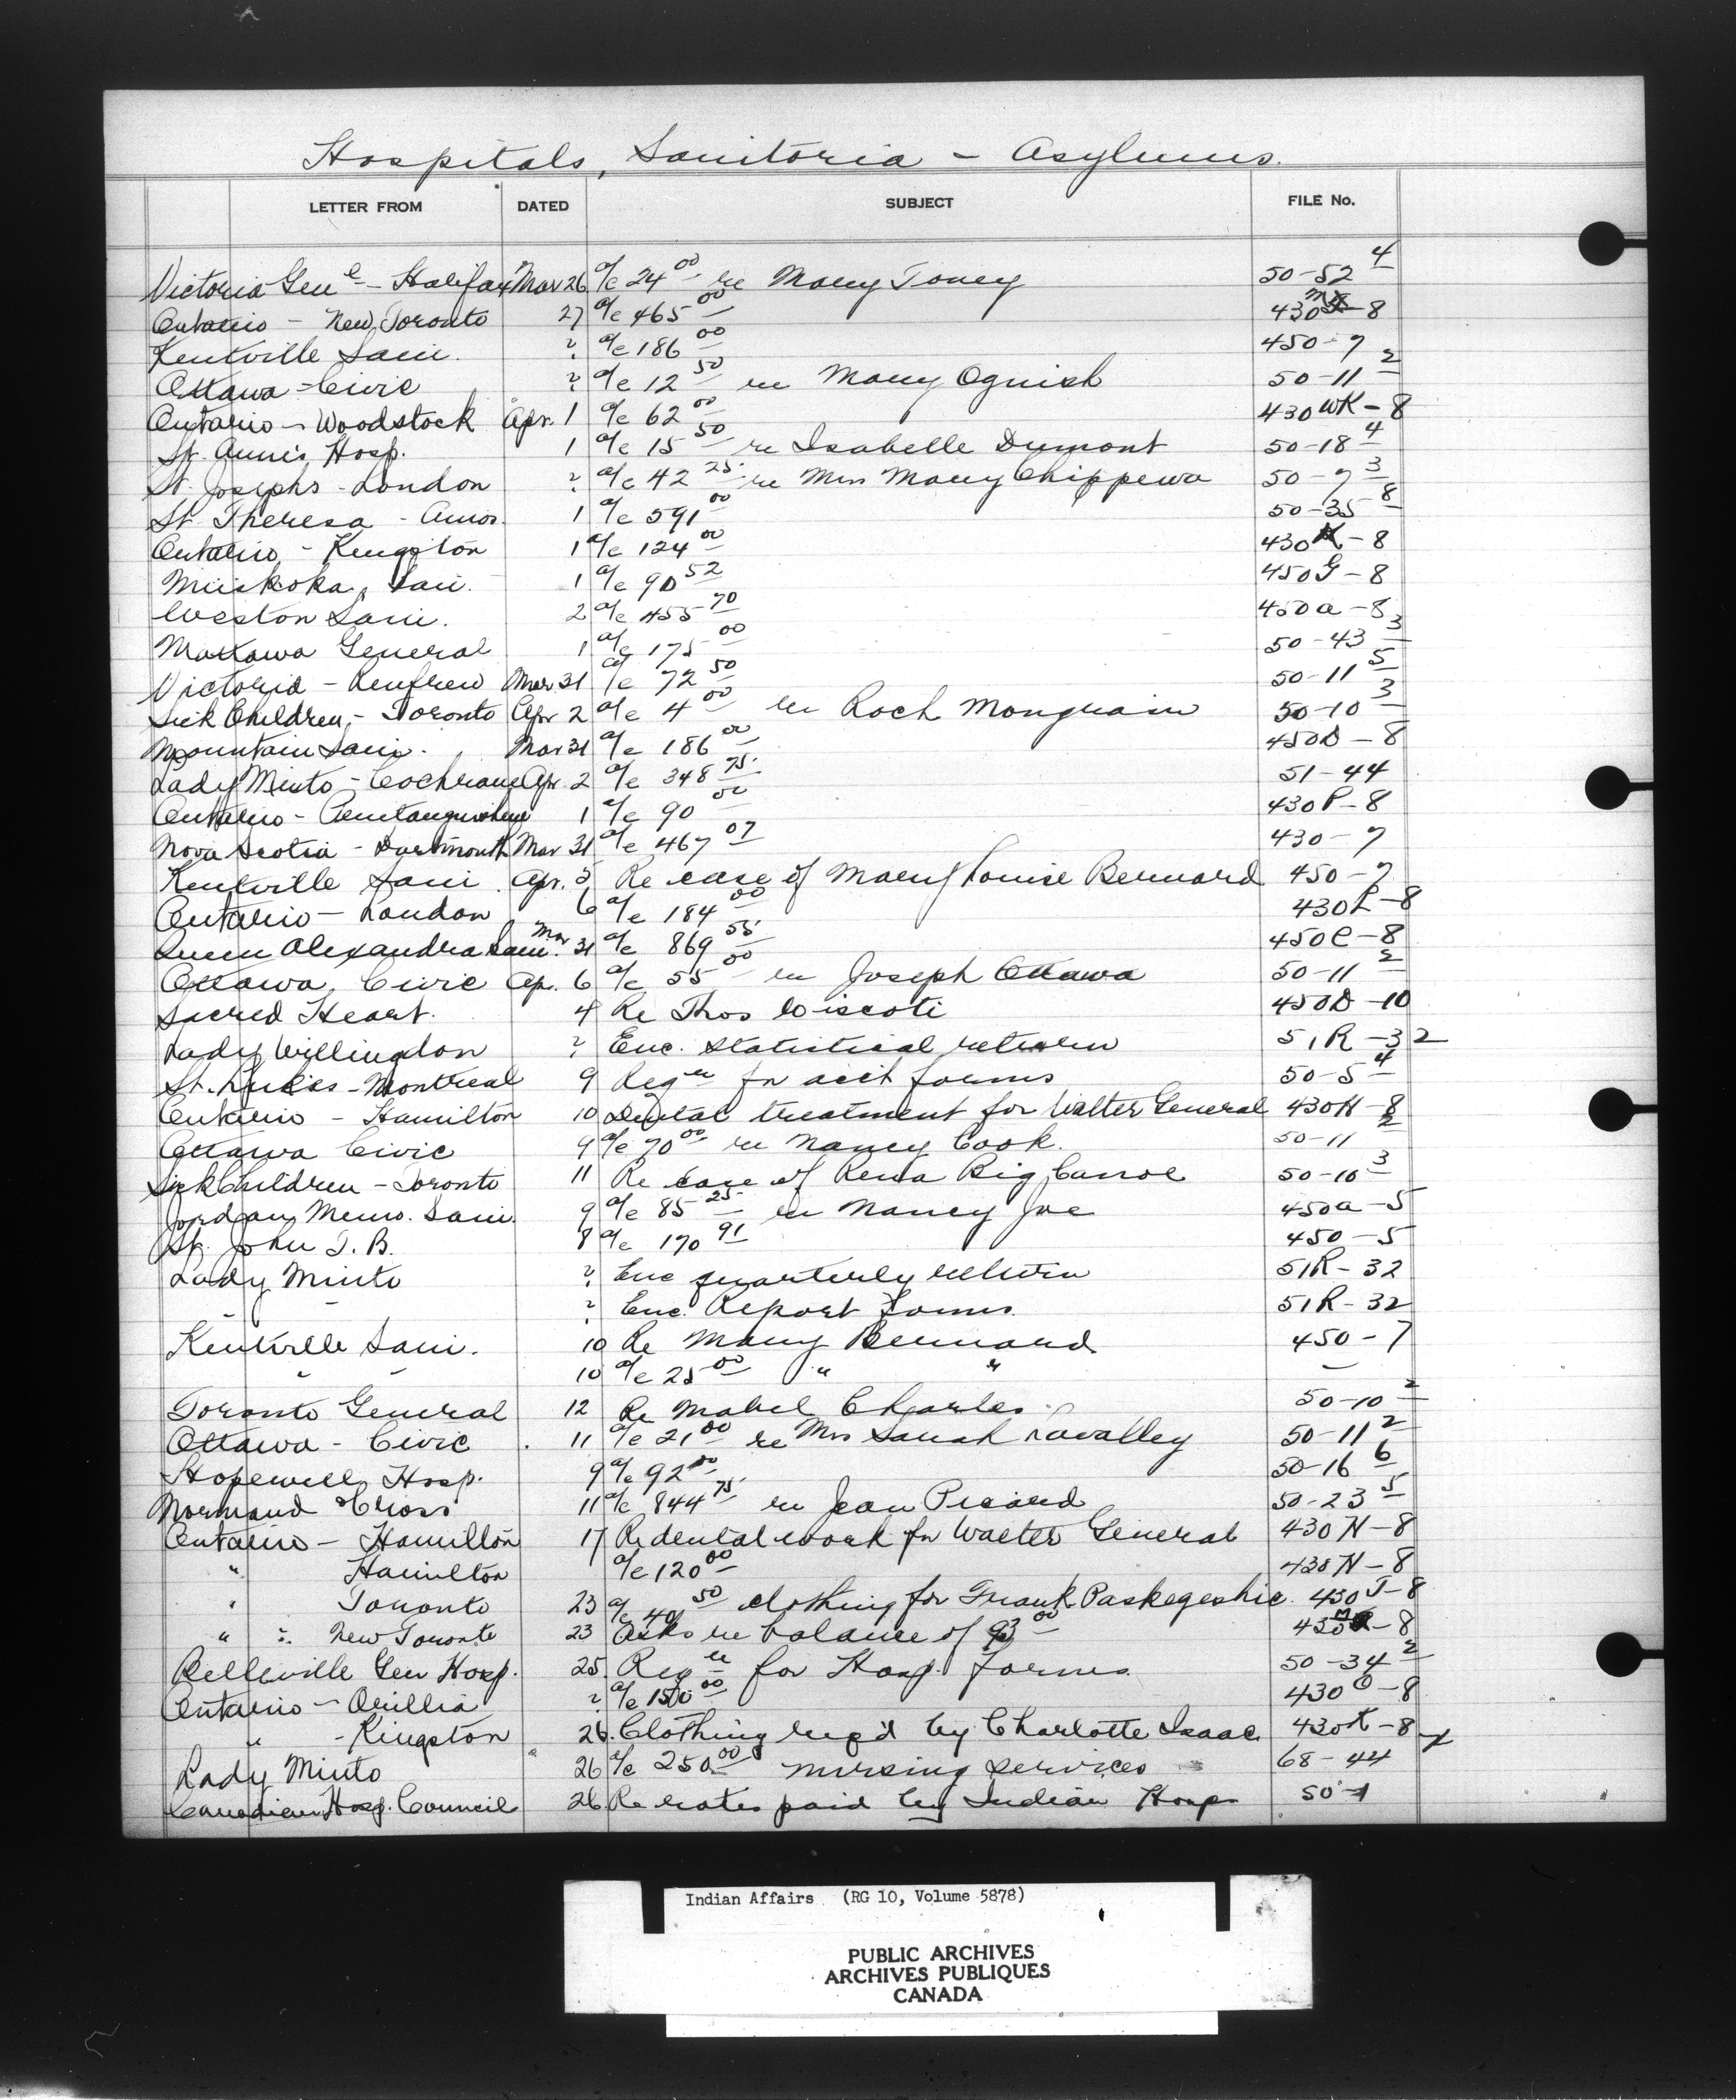 Hospitals, Sanitoria - Asylums.
LETTER FROM DATED SUBJECT FILE No.
Victoria Gen'l - Halifax Mar 26 a/c 24 00 re Mary Toney 50-52 4
Ontario - New Toronto 27 a/c 465 00 430 -8
Kentville San. ? a/c 186 00 450-7
Ottawa - Civic ? a/c 12 50 re Mary Ognish 50-11 2
Ontario - Woodstock Apr. 1 a/c 62 00 430 WK-8
St. Anne's Hosp. 1 a/c 15 50 re Isabelle Dumont 50-18 4
St. Josephs - London ? a/c 42 25 re Mrs Mary Chippewa 50-7 3
St Theresa - Amos. 1 a/c 591 00 50-35 8
Ontario - Kingston 1 a/c 124 00 430K-8
Muskoka San. 1 a/c 90 52 450G-8
Weston San. 2 a/c 455 70 450a-8
Mattawa General 1 a/c 175 00 50-43 3
Victoria - Renfrew Mar 31 a/c 72 50 50-11 5
Sick Children - Toronto Apr 2 a/c 4 00 re Roch Mongrain 50-10 3
Mountain San. Mar 31 a/c 186 00 450D-8
Lady Minto - Cochrane Apr. 2 a/c 348 75 51-44
Ontario - Penetanguishene 1 a/c 90 00 430P-8
Nova Scotia - Dartmouth Mar 31 a/c 467 07 430-7
Kentville San Apr. 5 Re case of Mary Louise Bernard 450-7
Ontario - London 6 a/c 184 00 430L-8
Queen Alexandra San. Mar 31 a/c 869 55 450C-8
Ottawa, Civic Ap. 6 a/c 55 00 re Joseph Ottawa 50-11 2
Sacred Heart. 4 Re Thos Wiscoti 450D-10
Lady Willingdon ? Enc. Statistical return 51R-32
St. Luke's - Montreal 9 Reqn for acct forms 50-5 4
Ontario - Hamilton 10 Dental treatment for Walter General 430H-8
Ottawa Civic 9 a/c 70 00 re Nancy Cook. 50-11 2
Sick Children - Toronto 11 Re case of Rena Big Canoe 50-10 3
Jordan Memo. San. 9 a/c 85 25 re Nancy Joe 450a-5
St. John T.B. 8 a/c 170 91 450-5
Lady Minto ? Enc quarterly return 51R-32
" " ? Enc. Report Forms. 51R-32
Kentville San. 10 Re Mary Bernard 450-7
" " 10 a/c 25 00 " " "
Toronto General 12 Re Mabel Charles 50-10 2
Ottawa - Civic 11 a/c 21 00 re Mrs Sarah Lavalley 50-11 2
Hopewell Hosp. 9 a/c 92 00 50-16 6
Normand & Cross 11 a/c 844 75 re Jean Picard 50-23 5
Ontario - Hamilton 17 Re dental work for Walter General 430H-8
" Hamilton a/c 120 00 430H-8
" Toronto 23 a/c 40 50 clothing for Frank Paskegeshic. 430T-8
" " New Toronto 23 Asks re balance of 93 00 430 -8
Belleville Gen Hosp. 25. Reqn for Hosp. Forms 50-34 2
Ontario - Orillia ? a/c 150 00 430 O-8
" -Kingston 26. Clothing req'd by Charlotte Isaac. 430K-8
Lady Minto 26 a/c 250 00 nursing services 68-44
Canadian Hosp. Council 26 Re rates paid by Indian Hosps 50-1
Indian Affairs (RG 10, Volume 5878)
PUBLIC ARCHIVES
ARCHIVES PUBLIQUES
CANADA